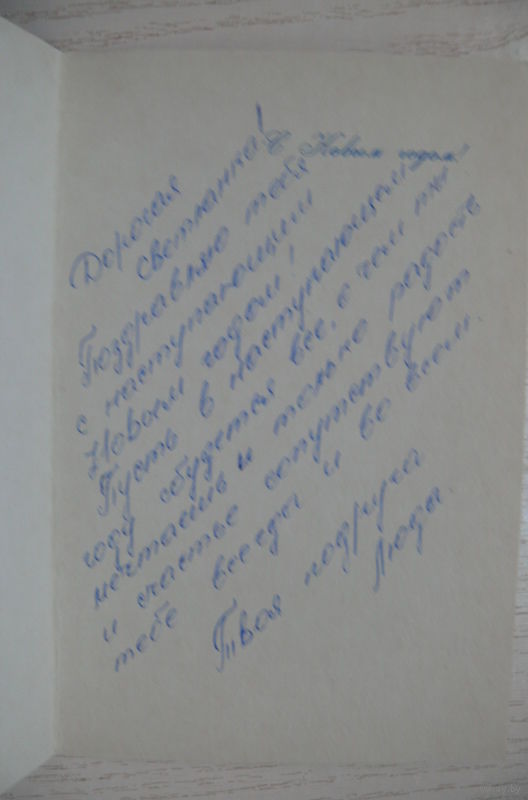 С Новым годом!
Дорогая
Светланка!
Поздравляю тебя
с наступающим
Новым годом!
Пусть в наступающем
году сбудется все, о чем ты
мечтаешь и только радость
и счастье сопутствуют
тебе всегда и во всем.
Твоя подруга
Люда.